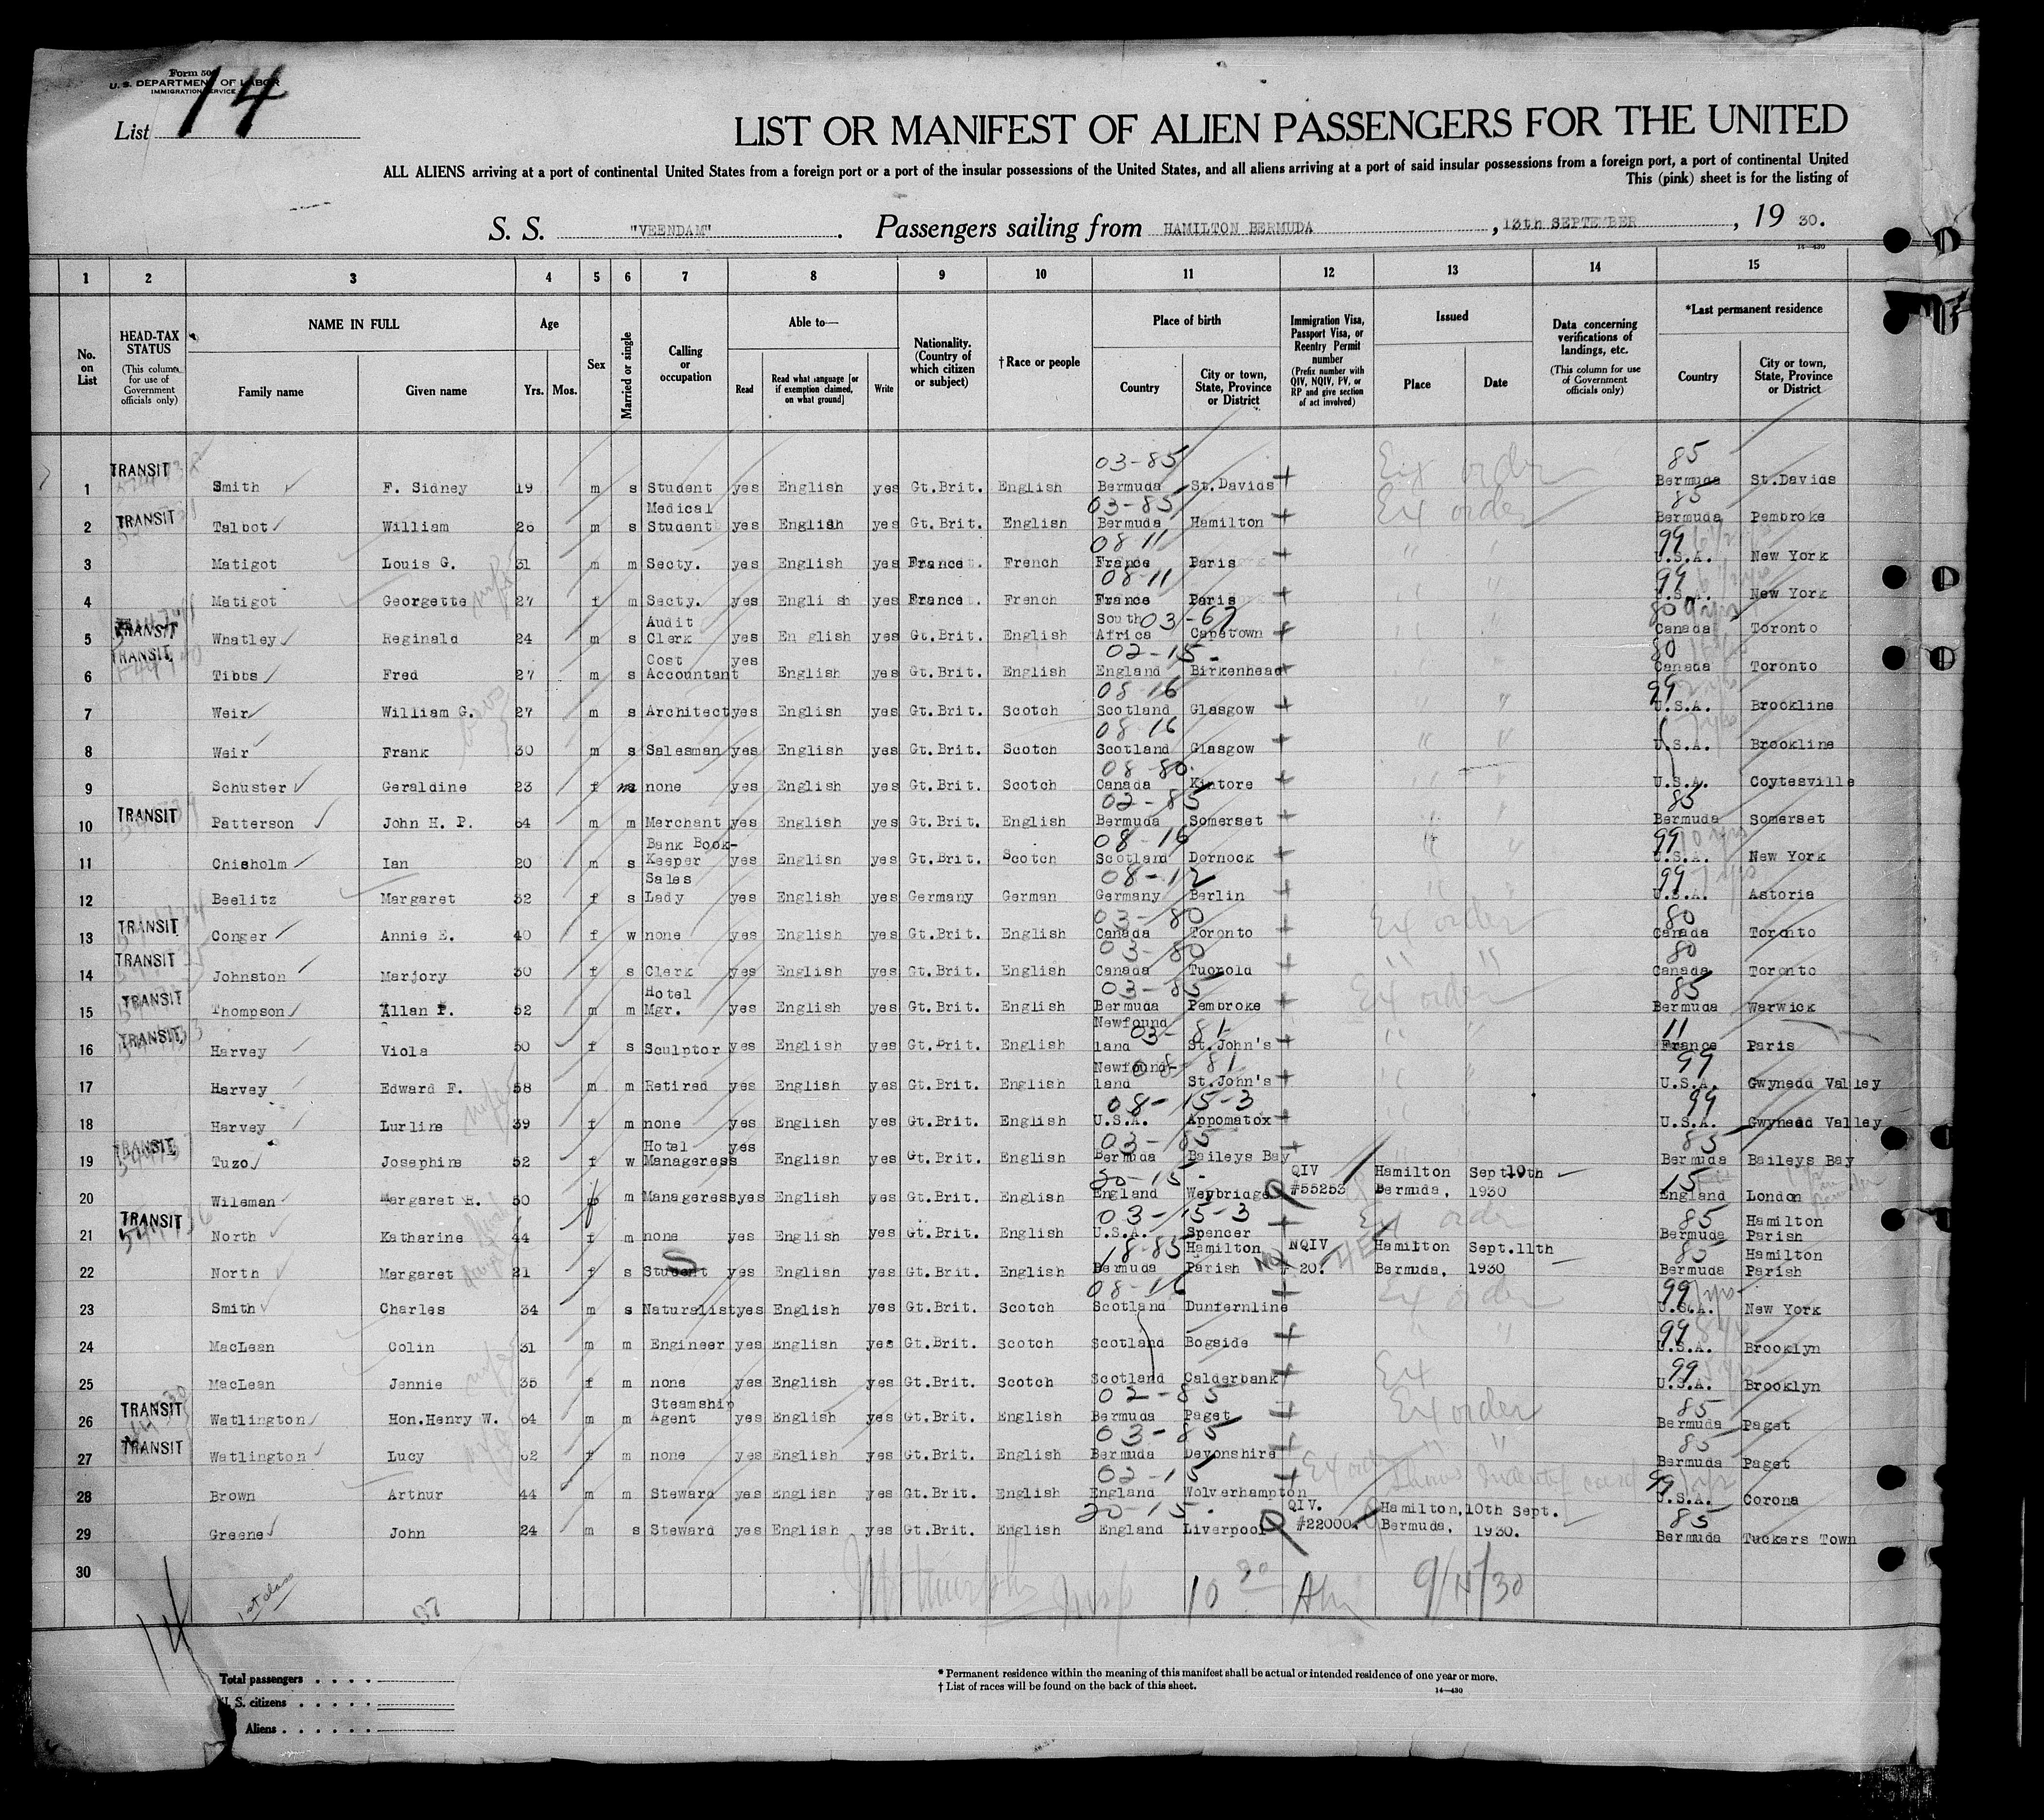 Form 500
U. S. DEPARTMENT OF LABOR
IMMIGRATION SERVICE
List 14
LIST OR MANIFEST OF ALIEN PASSENGERS FOR THE UNITED
ALL ALIENS arriving at a port of continental United States from a foreign port or a port of the insular possessions of the United States, and all aliens arriving at a port of said insular possessions from a foreign port, a port of continental United
This (pink) sheet is for the listing of
S. S. "VEENDAM". Passengers sailing from HAMILTON BERMUDA, 13th SEPTEMBER, 19 30.
14—430
1 2 3 4 5 6 7 8 9 10 11 12 13 14 15
No. on List
HEAD-TAX STATUS (This column for use of Government officials only)
NAME IN FULL Family name Given name
Age Yrs. Mos.
Sex
Married or single
Calling or occupation
Able to— Read Read what language [or if exemption claimed, on what ground] Write
Nationality. (Country of which citizen or subject)
†Race or people
Place of birth Country City or town, State, Province or District
Immigration Visa, Passport Visa, or Reentry Permit number (Prefix number with QIV, NQIV, PV, or RP and give section of act involved)
Issued Place Date
Data concerning verifications of landings, etc. (This column for use of Government officials only)
*Last permanent residence Country City or town, State, Province or District
TRANSIT 03-85 85
1 Smith F. Sidney 19 m s Student yes English yes Gt.Brit. English Bermuda St.Davids Ex order Bermuda St.Davids
TRANSIT Medical 03-85 85
2 Talbot William 26 m s Student yes English yes Gt.Brit. English Bermuda Hamilton Ex order Bermuda Pembroke
08-11 99
3 Matigot Louis G. 31 m m Secty. yes English yes France French France Paris " " U.S.A. New York
08-11 99
4 Matigot Georgette 27 f m Secty. yes Engli sh yes France French France Paris " " U.S.A. New York
TRANSIT Audit South 03-67 80
5 Whatley Reginald 24 m s Clerk yes En glish yes Gt.Brit. English Africa Capetown Canada Toronto
TRANSIT Cost yes 02-15 80
6 Tibbs Fred 27 m s Accountant English yes Gt.Brit. English England Birkenhead Canada Toronto
08-16 99
7 Weir William G. 27 m s Architect yes English yes Gt.Brit. Scotch Scotland Glasgow " " U.S.A. Brookline
08-16
8 Weir Frank 30 m s Salesman yes English yes Gt.Brit. Scotch Scotland Glasgow " " U.S.A. Brookline
08-80
9 Schuster Geraldine 23 f m none yes English yes Gt.Brit. Scotch Canada Kintore " " U.S.A. Coytesville
TRANSIT 02-85 85
10 Patterson John H. P. 64 m m Merchant yes English yes Gt.Brit. English Bermuda Somerset " " Bermuda Somerset
Bank Book- 08-16 99
11 Chisholm Ian 20 m s Keeper yes English yes Gt.Brit. Scotch Scotland Dornock " " U.S.A. New York
Sales 08-12 99
12 Beelitz Margaret 32 f s Lady yes English yes Germany German Germany Berlin " " U.S.A. Astoria
TRANSIT 03-80 80
13 Conger Annie E. 40 f w none yes English yes Gt.Brit. English Canada Toronto Ex order Canada Toronto
TRANSIT 03-80 80
14 Johnston Marjory 30 f s Clerk yes English yes Gt.Brit. English Canada Tuorold " " Canada Toronto
TRANSIT Hotel 03-85 85
15 Thompson Allan F. 52 m m Mgr. yes English yes Gt.Brit. English Bermuda Pembroke Ex order Bermuda Warwick
TRANSIT Newfound 03-81 11
16 Harvey Viola 50 f s Sculptor yes English yes Gt.Brit. English land St.John's " " France Paris
Newfound- 08-81 99
17 Harvey Edward F. 58 m m Retired yes English yes Gt.Brit. English land St.John's " " U.S.A. Gwynedd Valley
08-15-3 99
18 Harvey Lurline 39 f m none yes English yes Gt.Brit. English U.S.A. Appomatox " " U.S.A. Gwynedd Valley
TRANSIT Hotel yes 03-85 85
19 Tuzo Josephine 52 f w Manageress English yes Gt.Brit. English Bermuda Baileys Bay Bermuda Baileys Bay
20-15 QIV Hamilton Sept 10th 15
20 Wileman Margaret R. 50 f m Manageress yes English yes Gt.Brit. English England Weybridge #55253 Bermuda, 1930 England London
TRANSIT 03-15-3 Ex order 85 Hamilton
21 North Katharine 44 f m none yes English yes Gt.Brit. English U.S.A. Spencer Bermuda Parish
18-85 Hamilton NQIV Hamilton Sept.11th 85 Hamilton
22 North Margaret 21 f s Student yes English yes Gt.Brit. English Bermuda Parish # 20. Bermuda, 1930 Bermuda Parish
08-16 99
23 Smith Charles 34 m s Naturalist yes English yes Gt.Brit. Scotch Scotland Dunfernline Ex order U.S.A. New York
99
24 MacLean Colin 31 m m Engineer yes English yes Gt.Brit. Scotch Scotland Bogside " " U.S.A. Brooklyn
99
25 MacLean Jennie 35 f m none yes English yes Gt.Brit. Scotch Scotland Calderbank Ex U.S.A. Brooklyn
TRANSIT Steamship 02-85 85
26 Watlington Hon.Henry W. 64 m m Agent yes English yes Gt.Brit. English Bermuda Paget Ex order Bermuda Paget
TRANSIT 03-85 85
27 Watlington Lucy 62 f m none yes English yes Gt.Brit. English Bermuda Devonshire " " Bermuda Paget
02-15 99
28 Brown Arthur 44 m m Steward yes English yes Gt.Brit. English England Wolverhampton Ex order U.S.A. Corona
20-15 QIV. Hamilton, 10th Sept. 85
29 Greene John 24 m s Steward yes English yes Gt.Brit. English England Liverpool #22000. Bermuda, 1930. Bermuda Tuckers Town
30
1st class
14
Insp 10 30 AM 9/15/30
Total passengers . . . .
U. S. citizens . . . . .
Aliens . . . . . .
* Permanent residence within the meaning of this manifest shall be actual or intended residence of one year or more.
† List of races will be found on the back of this sheet.
14—430